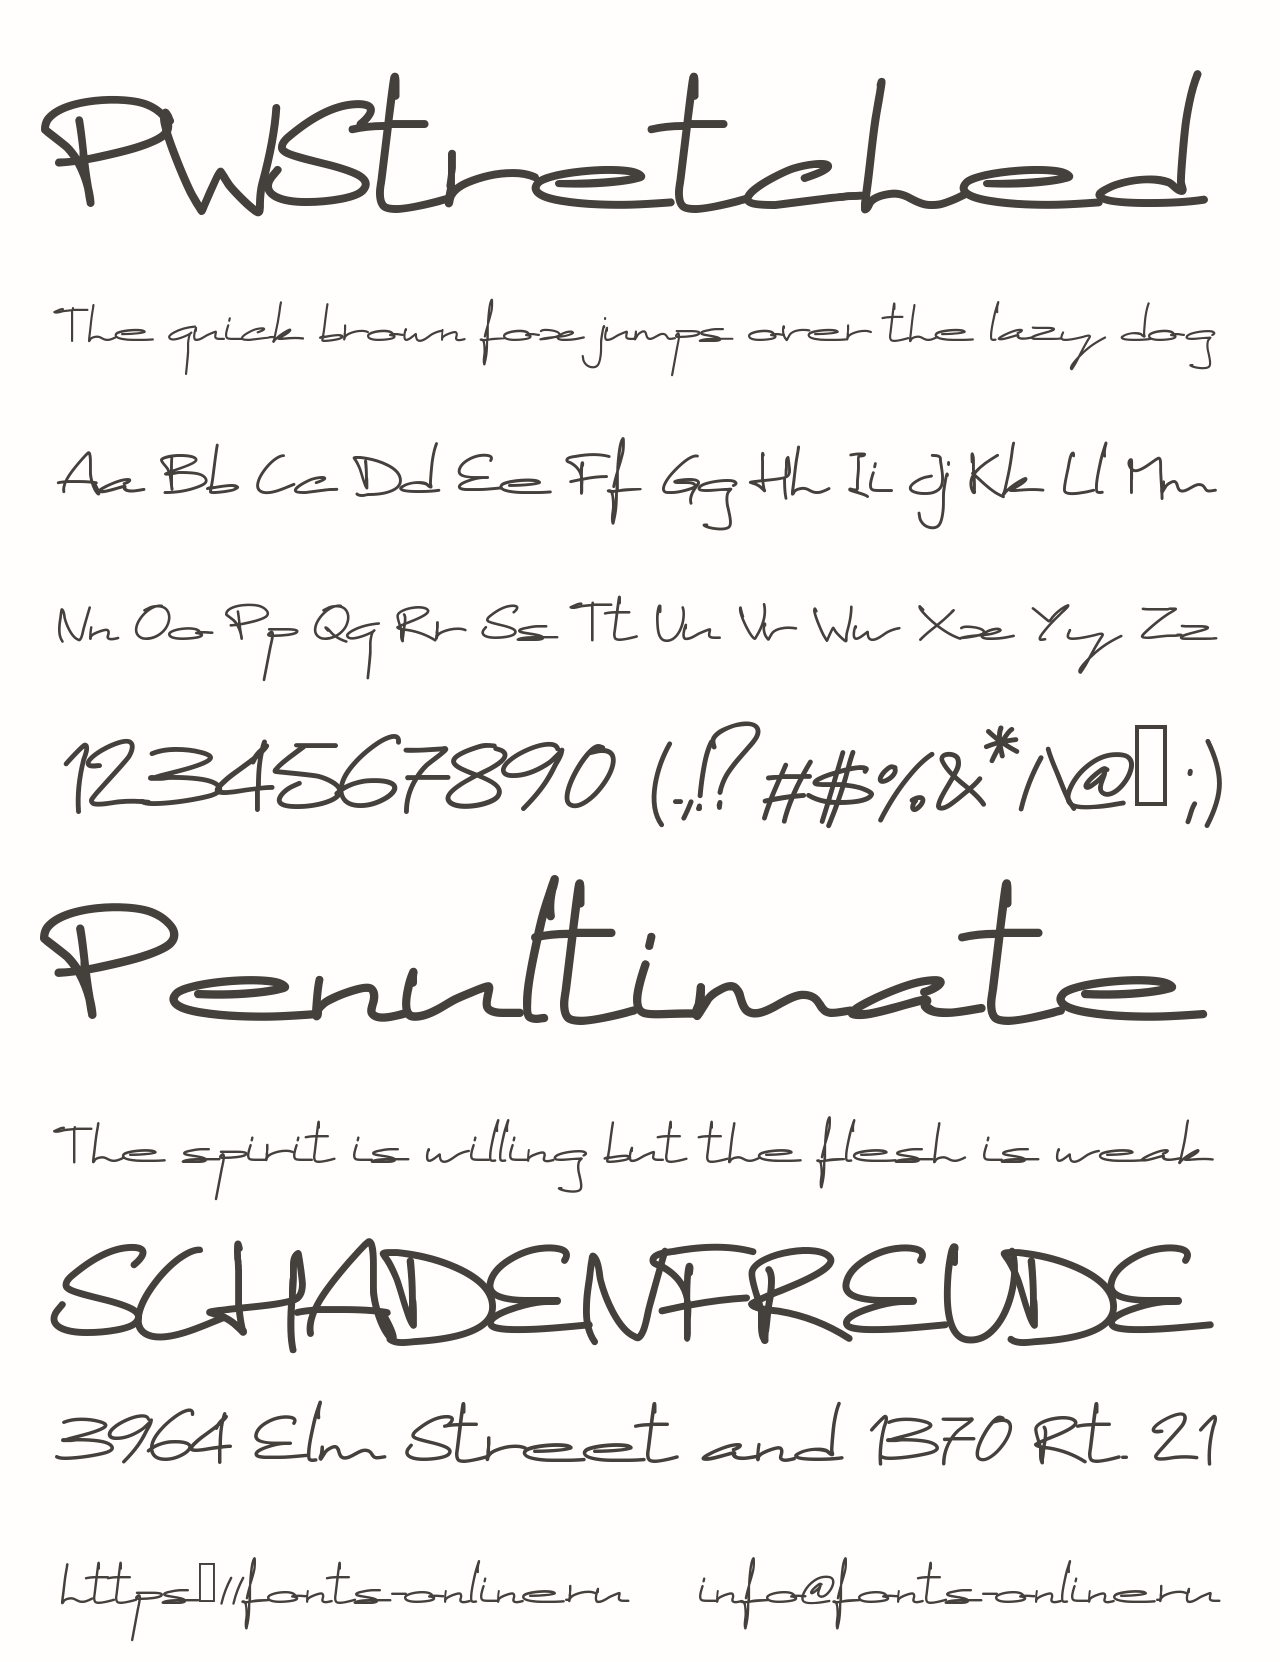 PWStretched
The quick brown fox jumps over the lazy dog
Aa Bb Cc Dd Ee Ff Gg Hh Ii Jj Kk Ll Mm
Nn Oo Pp Qq Rr Ss Tt Uu Vv Ww Xx Yy Zz
1234567890 (-,.!?#$%&*/\@▯;)
Penultimate
The spirit is willing but the flesh is weak
SCHADENFREUDE
3964 Elm Street and 1370 Rt. 21
https▯//fonts-online.ru info@fonts-online.ru